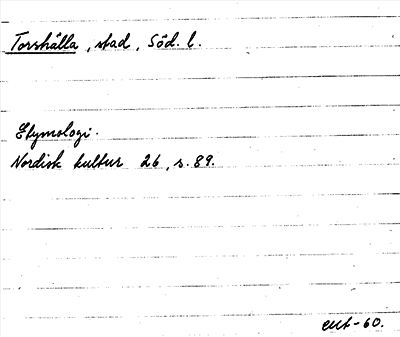 Torshälla, stad, Söd. l.
Etymologi.
Nordisk kultur 26, s. 89.